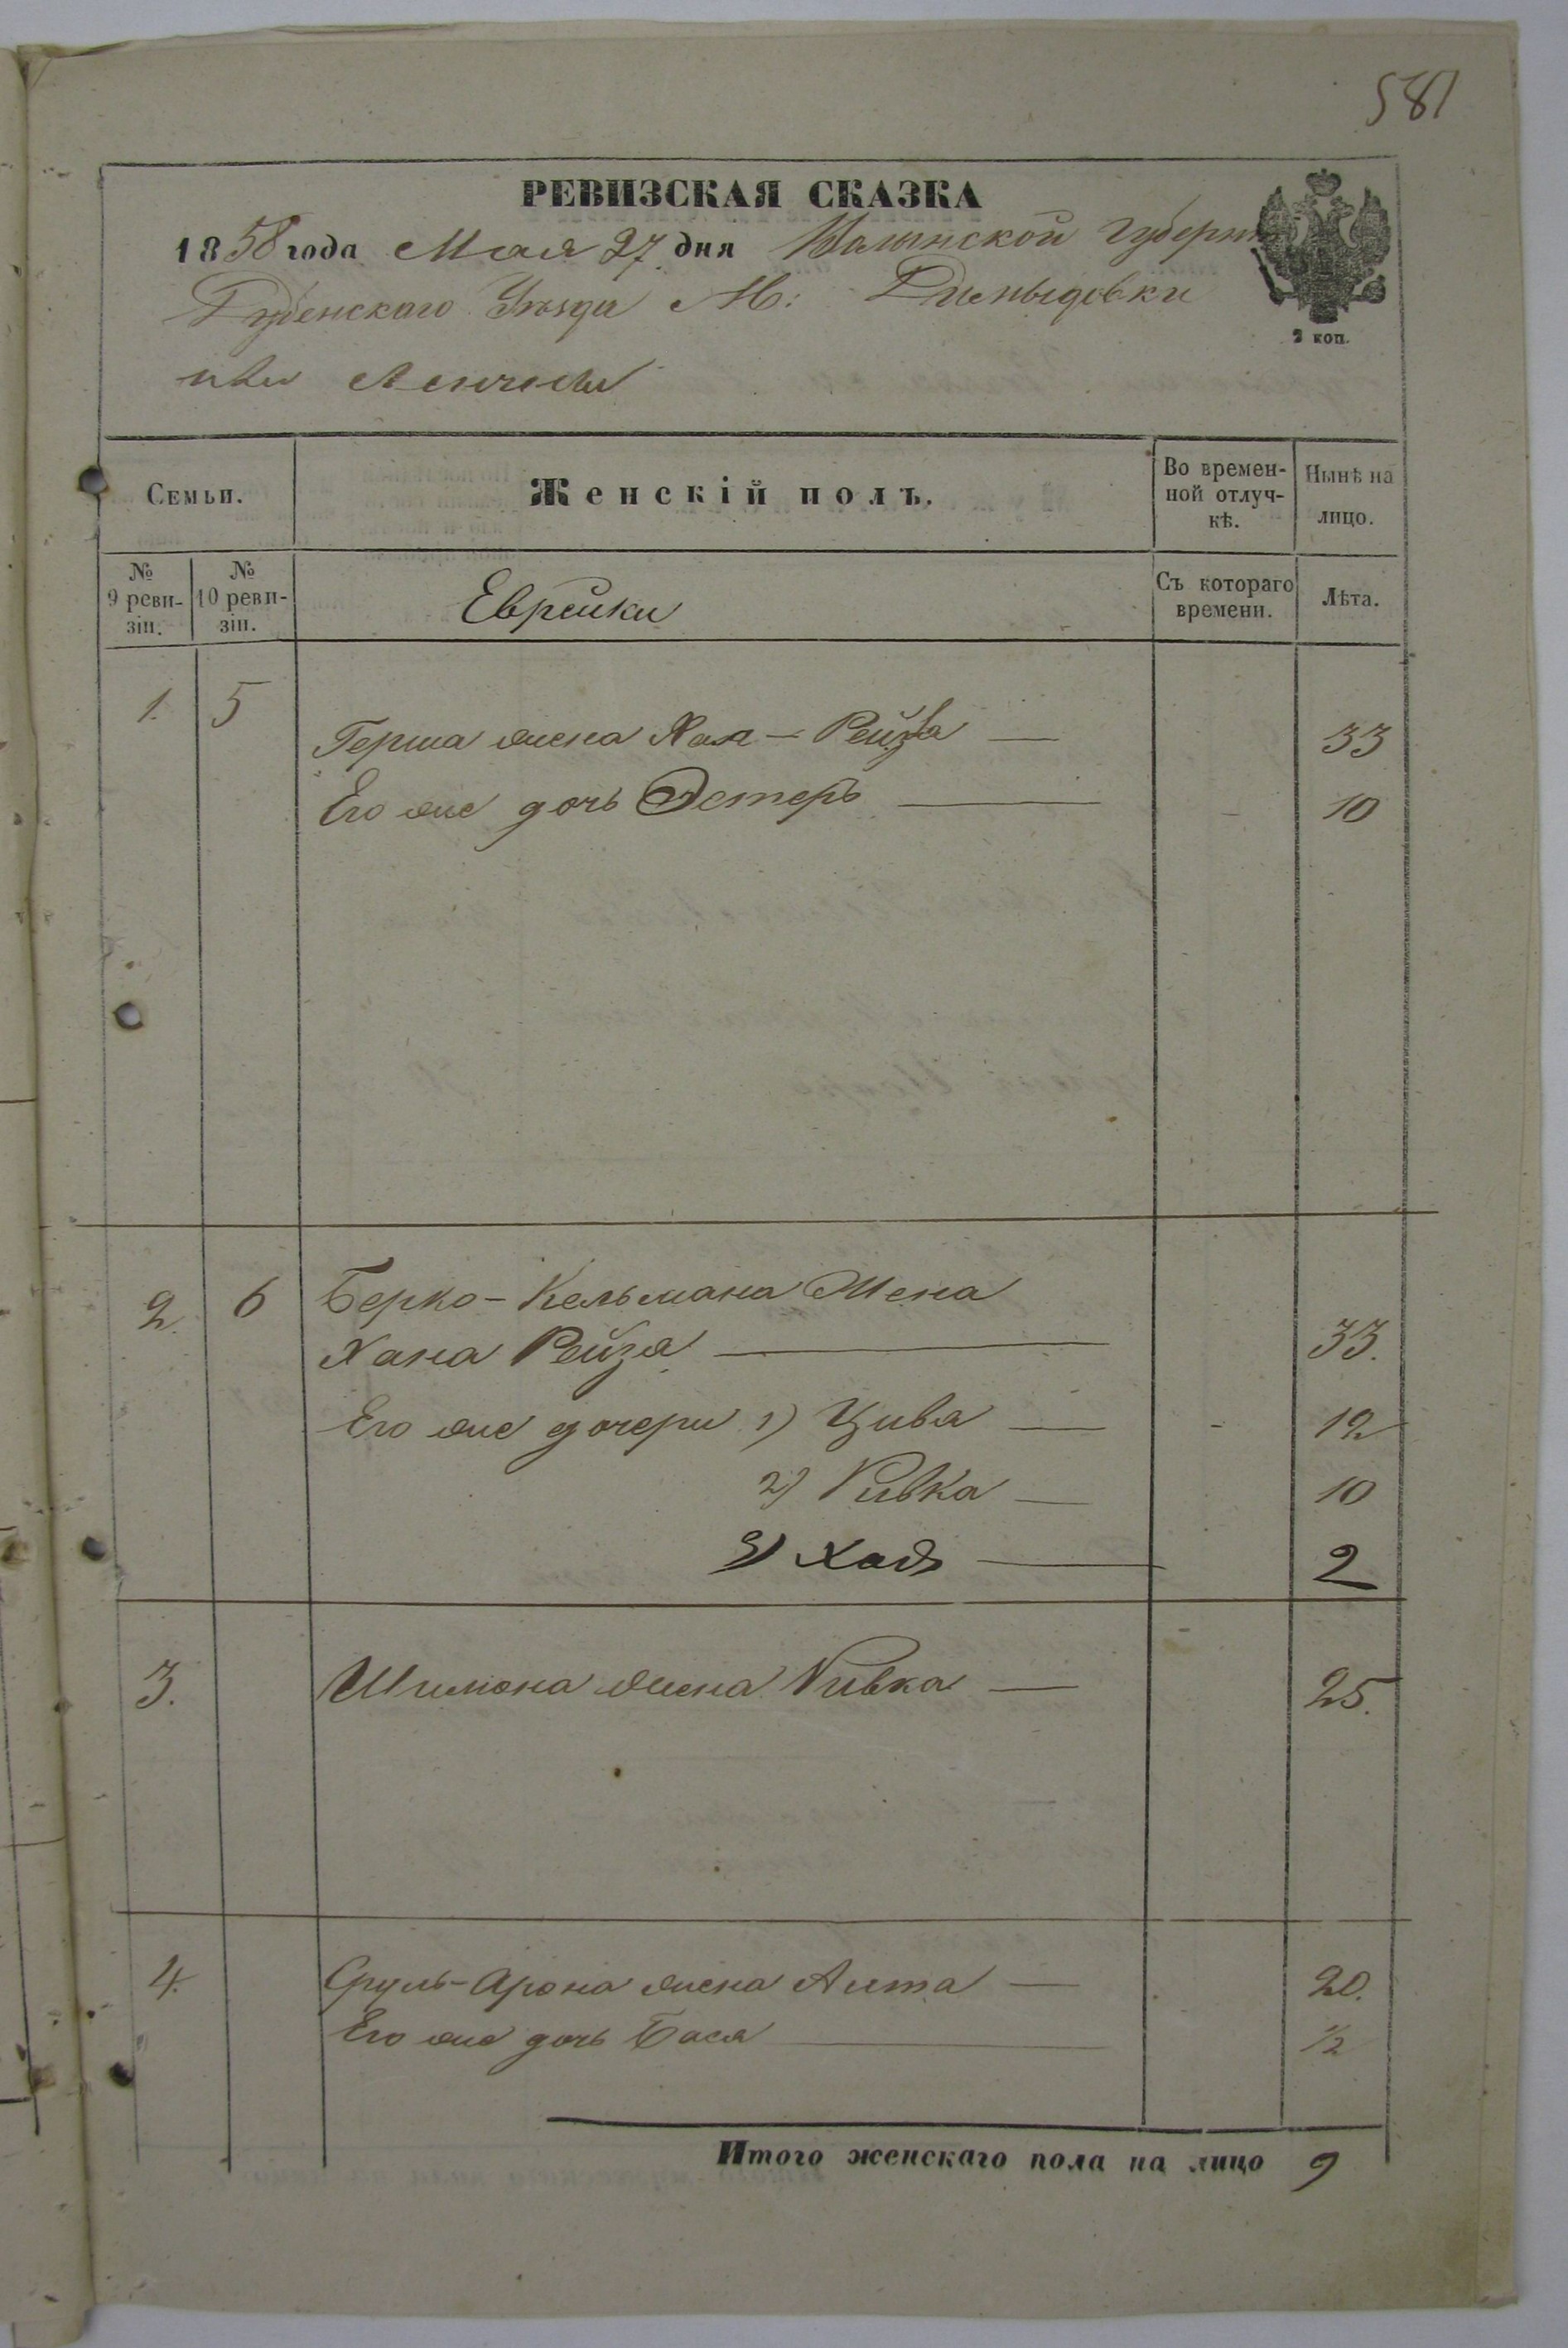 581
РЕВИЗСКАЯ СКАЗКА
1858 года Мая 27 дня Волынской Губерніи
Дубенскаго Уѣзда М:
или
2 коп.
Семьи.
Женскій полъ.
Во времен-
ной отлуч-
кѣ.
Нынѣ на
лицо.
№
9 реви-
зіи.
№
10 реви-
зіи.
Еврейки
Съ котораго
времени.
Лѣта.
1. 5
Герша жена Хая - Рейза — 33
Его же дочь Эстеръ — 10
2. 6 Берко - Кельмана Жена
Хана Рейзя — 33.
Его же дочери 1) Цива — 12
2) Ривка — 10
3) — 2
3. Шимона жена Ривка — 25.
4. Сруль - Арона жена — 20.
Его же дочь Бася — 1/2
Итого женскаго пола на лицо 9